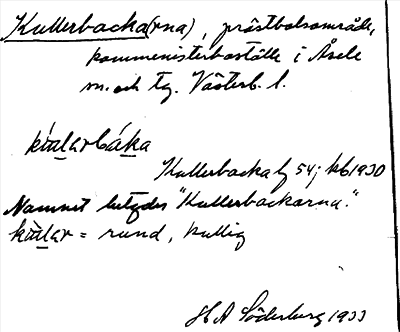 Kullerbacka(rna), prästbolsområde,
komministerboställe i Åsele
sn. och tg. Västerb. l.
Kullerbacka 54; kb 1930
Namnet betyder "Kullerbackarna".
= rund, kullig
H A Söderberg 1933